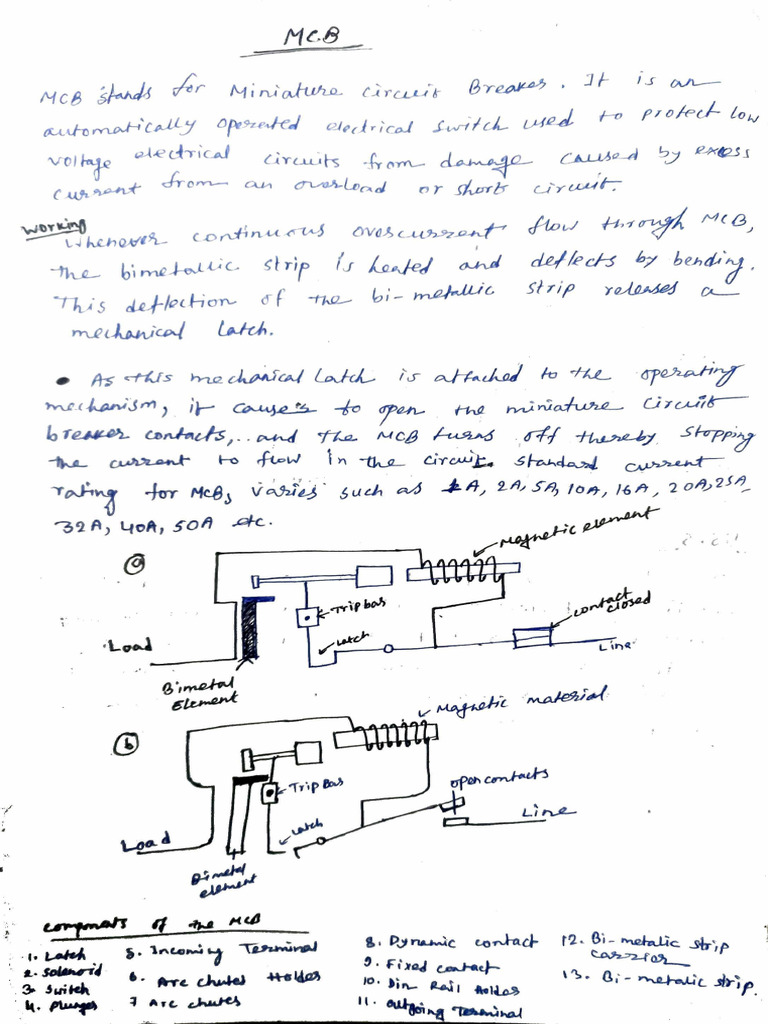 MCB
MCB stands for Miniature Circuit Breaker. It is an
automatically operated electrical switch used to protect low
voltage electrical circuits from damage caused by excess
current from an overload or short circuit.
Working
Whenever continuous overcurrent flow through MCB,
the bimetallic strip is heated and deflects by bending.
This deflection of the bi-metallic strip releases a
mechanical latch.
• As this mechanical latch is attached to the operating
mechanism, it causes to open the miniature circuit
breaker contacts, and the MCB turns off thereby stopping
the current to flow in the circuit. Standard current
rating for MCB, varies such as 1A, 2A, 5A, 10A, 16A, 20A, 25A,
32A, 40A, 50A etc.
a
Magnetic element
Trip bar
contact closed
Load
Latch
Line
Bimetal
Element
b
Magnetic material
Trip Bar
open contacts
Load
Latch
Line
Bimetal
element
Components of the MCB
1. Latch
2. Solenoid
3. Switch
4. Plunger
5. Incoming Terminal
6. Arc chutes Holder
7 Arc chutes
8. Dynamic contact
9. Fixed contact
10. Din Rail Holder
11. outgoing Terminal
12. Bi-metalic strip
carrier
13. Bi-metalic strip.